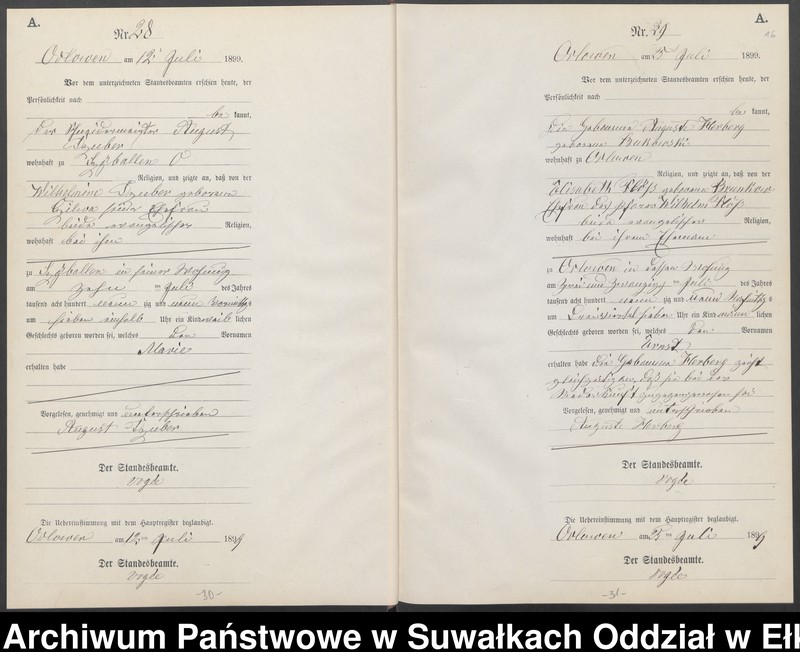 A.
Nr. 28
Orlowen am 12ten Juli 1899.
Vor dem unterzeichneten Standesbeamten erschien heute, der
Persönlichkeit nach
be kannt,
der Schneidermeister August
Szuber
wohnhaft zu Czyballen O
Religion, und zeigte an, daß von der
Wilhelmine Szuber geborenen
seiner Ehefrau
beide evangelischer Religion,
wohnhaft bei ihm
zu Czyballen in seiner Wohnung
am zehn ten Juli des Jahres
tausend acht hundert neun zig und neun Vormittags
um sieben einhalb Uhr ein Kind weib lichen
Geschlechts geboren worden sei, welches den Vornamen
Marie
erhalten habe
Vorgelesen, genehmigt und unterschrieben
August Szuber
Der Standesbeamte.
Vogde
Die Uebereinstimmung mit dem Hauptregister beglaubigt.
Orlowen am 12ten Juli 1899
Der Standesbeamte.
Vogde
-30-
A.
16
Nr. 29
Orlowen am 25 Juli 1899.
Vor dem unterzeichneten Standesbeamten erschien heute, der
Persönlichkeit nach
be kannt,
die Hebamme Auguste Herberg
geborene Bukowski
wohnhaft zu Orlowen
Religion, und zeigte an, daß von der
Elisabeth Klöß geborenen
Ehefrau des Pfarrers Wilhelm Klöß
beide evangelischer Religion,
wohnhaft bei ihrem Ehemann
zu Orlowen in dessen Wohnung
am zwei und zwanzig ten Juli des Jahres
tausend acht hundert neun zig und neun Nachmittags
um dreiviertel sieben Uhr ein Kind männ lichen
Geschlechts geboren worden sei, welches den Vornamen
Ernst
erhalten habe Die Hebamme Herberg zeigt
gleichzeitig an, daß sie bei der
Niederkunft zugegen gewesen sei
Vorgelesen, genehmigt und unterschrieben
Auguste Herberg
Der Standesbeamte.
Vogde
Die Uebereinstimmung mit dem Hauptregister beglaubigt.
Orlowen am 25ten Juli 1899
Der Standesbeamte.
Vogde
-31-
Archiwum Państwowe w Suwałkach Oddział w Ełk